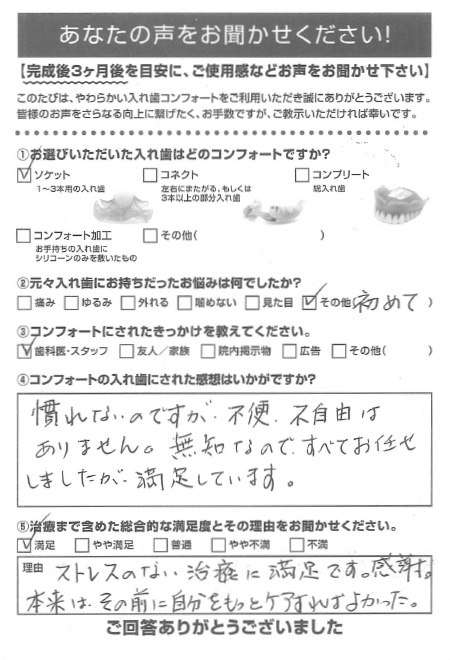 あなたの声をお聞かせください!
【完成後3ヶ月後を目安に、ご使用感などお声をお聞かせ下さい】
このたびは、やわらかい入れ歯コンフォートをご利用いただき誠にありがとうございます。
皆様のお声をさらなる向上に繋げたく、お手数ですが、ご教示いただければ幸いです。
①お選びいただいた入れ歯はどのコンフォートですか?
☑ソケット □コネクト □コンプリート
1〜3本用の入れ歯 左右にまたがる、もしくは 総入れ歯
3本以上の部分入れ歯
□コンフォート加工 □その他( )
お手持ちの入れ歯に
シリコーンのみを敷いたもの
②元々入れ歯にお持ちだったお悩みは何でしたか?
□痛み □ゆるみ □外れる □噛めない □見た目 ☑その他(初めて )
③コンフォートにされたきっかけを教えてください。
☑歯科医・スタッフ □友人/家族 □院内掲示物 □広告 □その他( )
④コンフォートの入れ歯にされた感想はいかがですか?
慣れないのですが、不便、不自由は
ありません。無知なので、すべてお任せ
しましたが、満足しています。
⑤治療まで含めた総合的な満足度とその理由をお聞かせください。
☑満足 □やや満足 □普通 □やや不満 □不満
理由 ストレスのない治療に満足です。感謝。
本来は、その前に自分をもっとケアすればよかった。
ご回答ありがとうございました